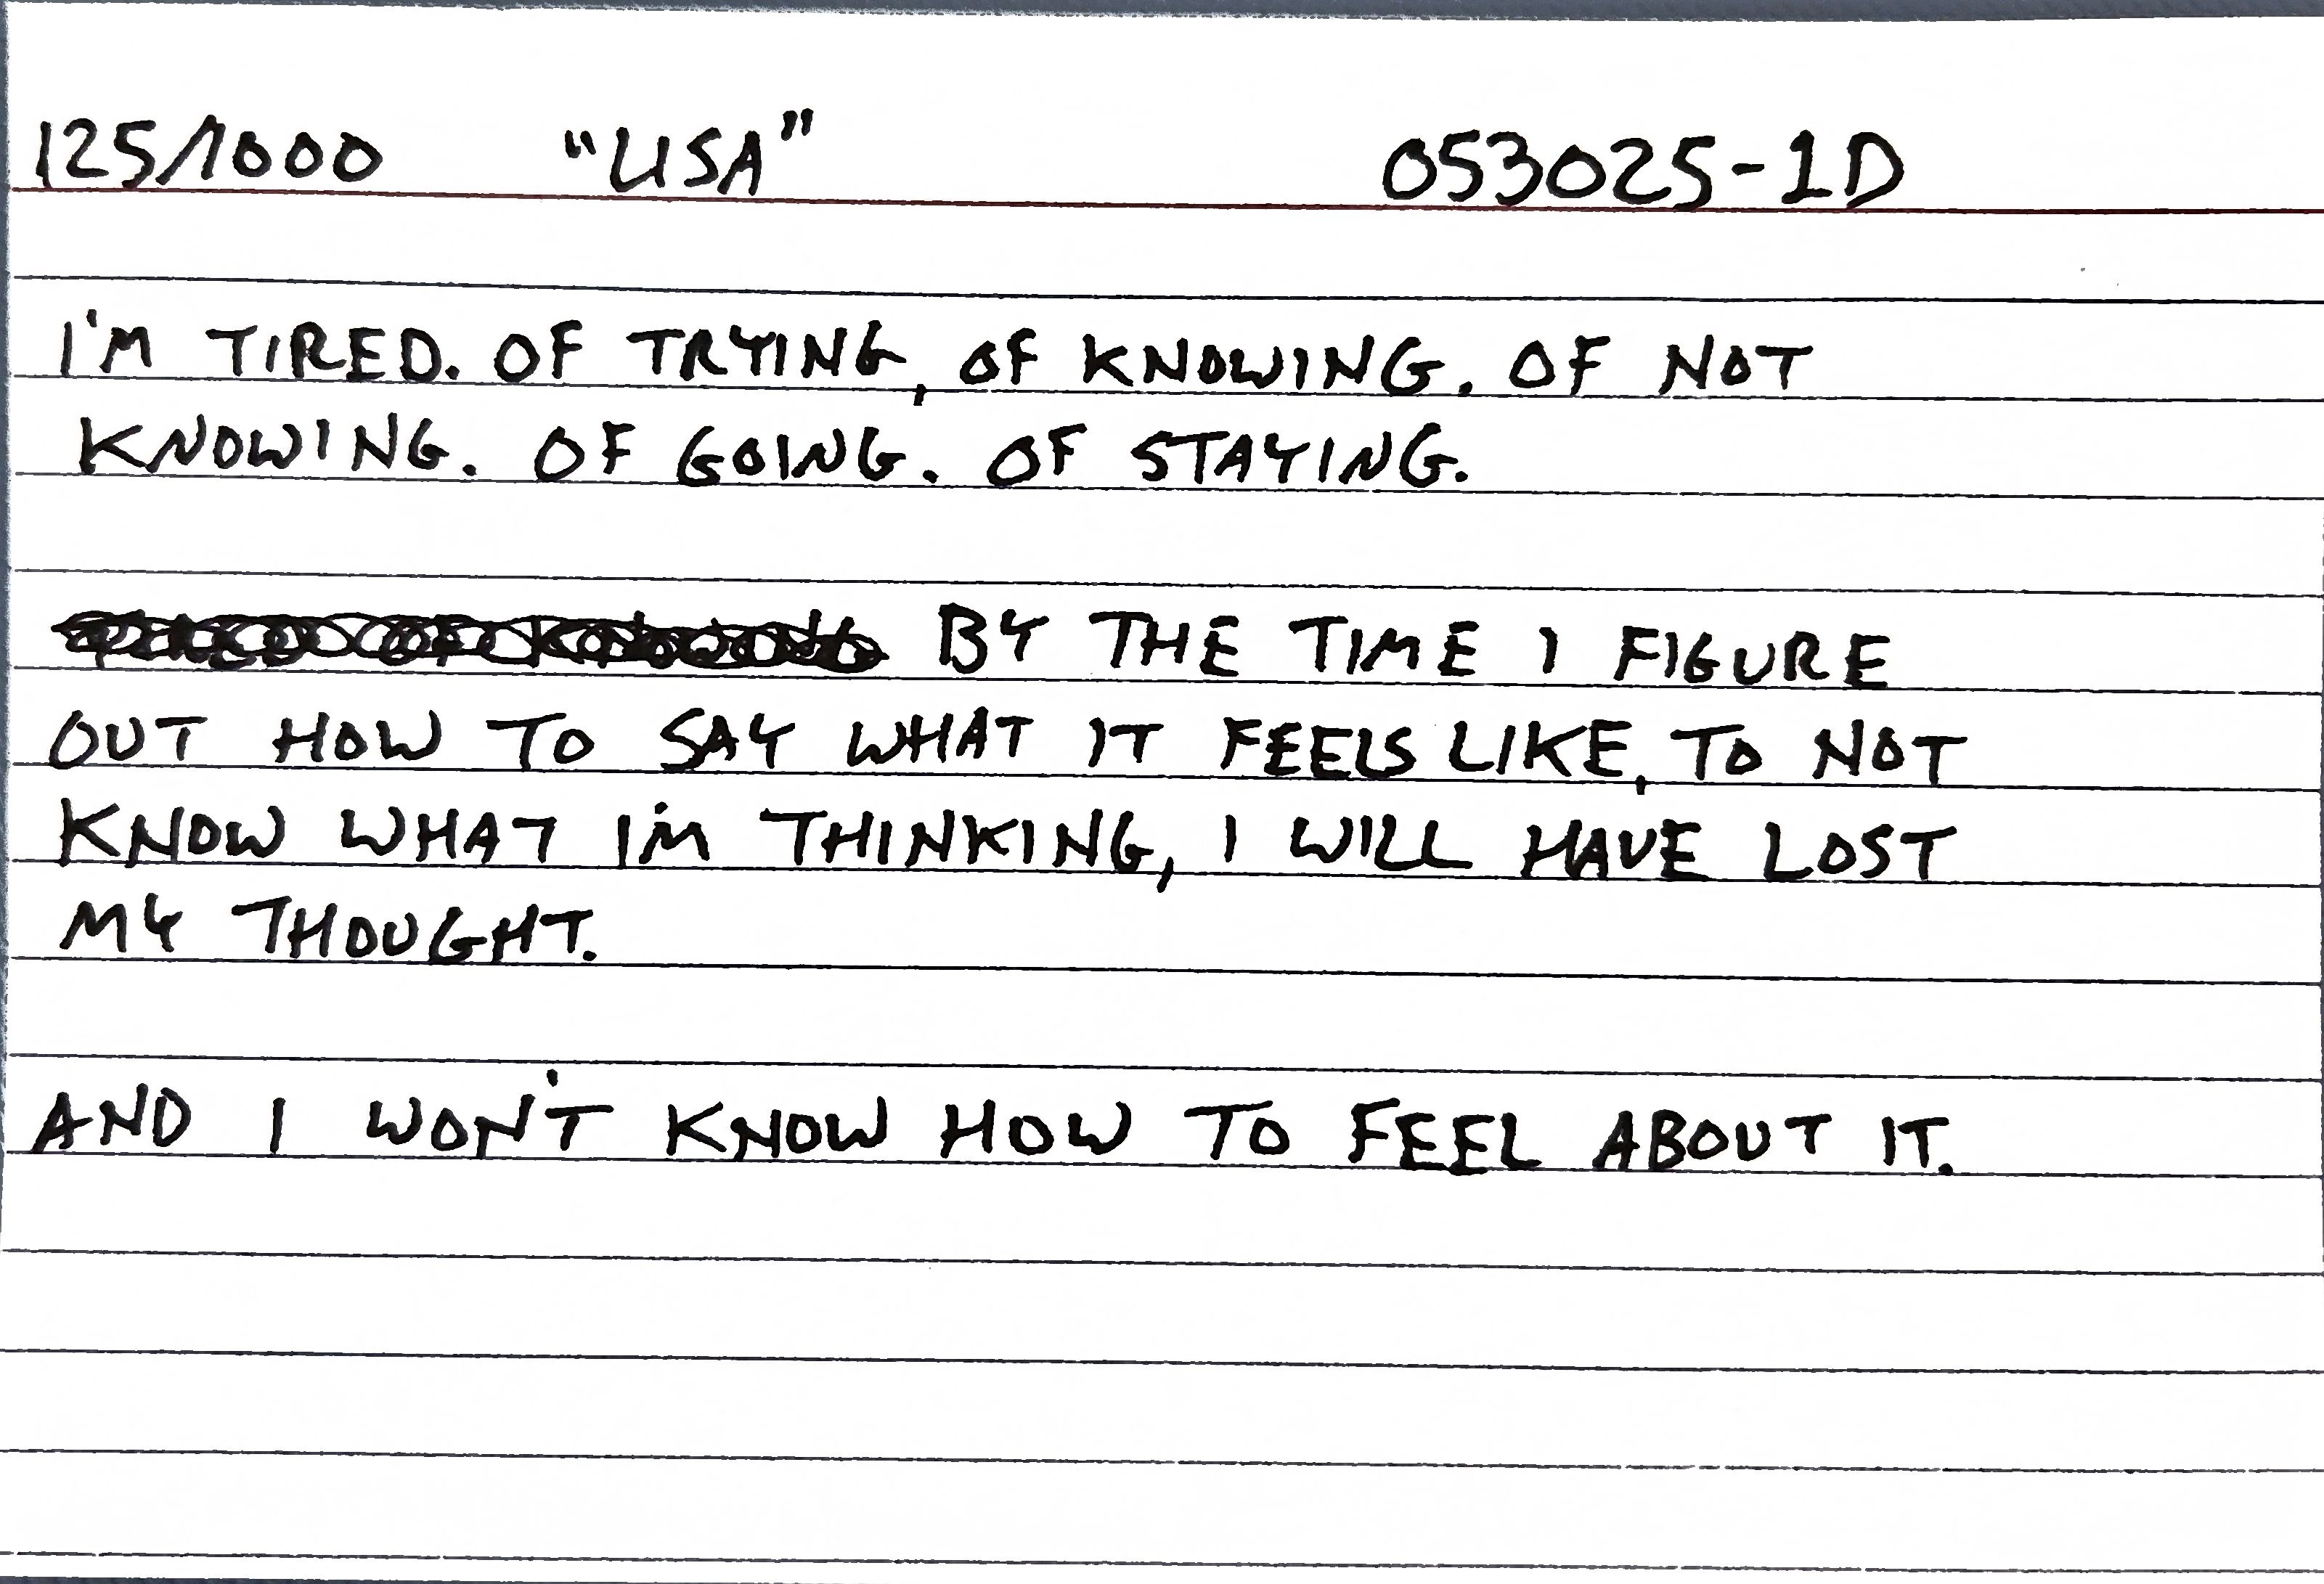 125/1000 "USA" 053025-1D
I'M TIRED. OF TRYING, OF KNOWING. OF NOT
KNOWING. OF GOING. OF STAYING.
BY THE TIME I FIGURE
OUT HOW TO SAY WHAT IT FEELS LIKE, TO NOT
KNOW WHAT I'M THINKING, I WILL HAVE LOST
MY THOUGHT.
AND I WON'T KNOW HOW TO FEEL ABOUT IT.